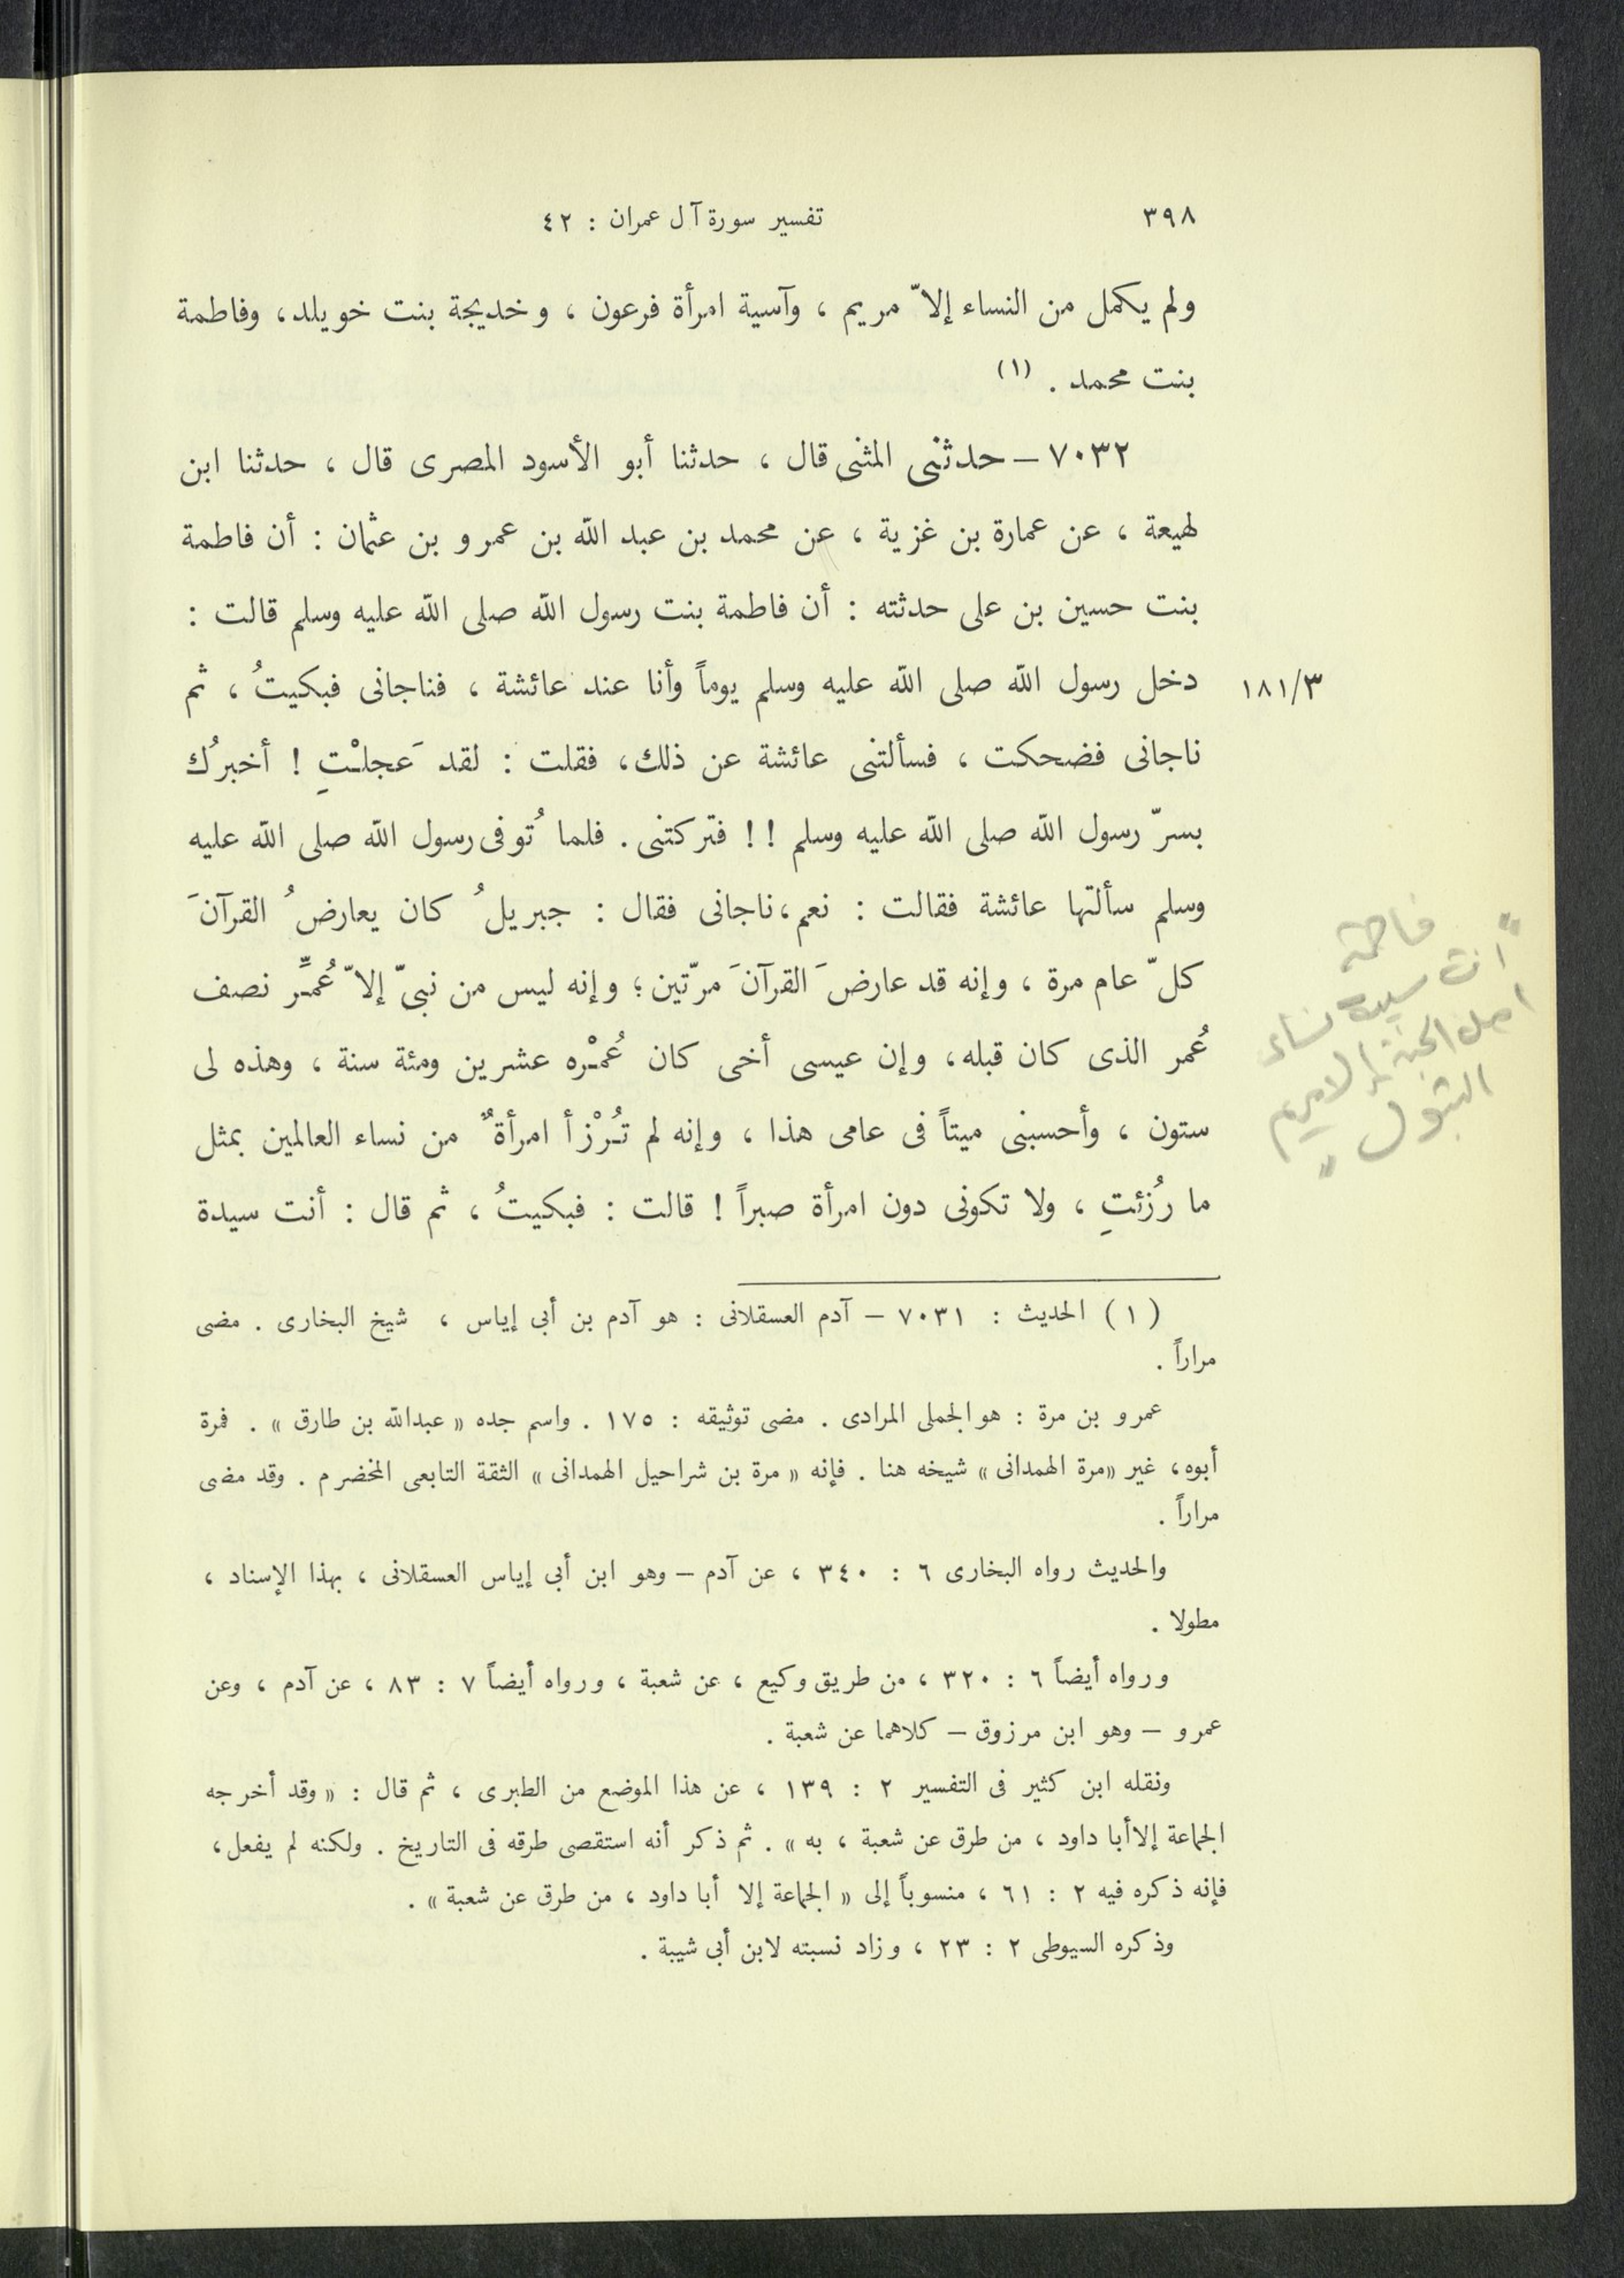 ٣٩٨
تفسير سورة آل عمران : ٤٢
ولم يكمل من النساء إلاّ مريم ، وآسية امرأة فرعون ، وخديجة بنت خويلد، وفاطمة
بنت محمد . (١)
٧٠٣٢ – حدثنى المثنى قال ، حدثنا أبو الأسود المصرى قال ، حدثنا ابن
لهيعة ، عن عمارة بن غزية ، عن محمد بن عبد الله بن عمرو بن عثمان : أن فاطمة
بنت حسين بن على حدثته : أن فاطمة بنت رسول الله صلى الله عليه وسلم قالت :
دخل رسول الله صلى الله عليه وسلم يوماً وأنا عند عائشة ، فناجانى فبكيتُ ، ثم
١٨١/٣
ناجانى فضحكت ، فسألتنى عائشة عن ذلك، فقلت : لقد عَجلْتِ ! أخبرُك
بسرّ رسول الله صلى الله عليه وسلم !! فتركتنى . فلما تُوفى رسول الله صلى الله عليه
وسلم سألتها عائشة فقالت : نعم، ناجانى فقال : جبريلُ كان يعارضُ القرآنَ
كلّ عام مرة ، وإنه قد عارضَ القرآنَ مرّتين؛ وإنه ليس من نبىّ إلاّ عُمِّر نصف
عُمر الذى كان قبله، وإن عيسى أخى كان عُمْره عشرين ومئة سنة ، وهذه لى
ستون ، وأحسبنى ميتاً فى عامى هذا ، وإنه لم تُرْزأ امرأةٌ من نساء العالمين بمثل
ما رُزئتِ ، ولا تكونى دون امرأة صبراً ! قالت : فبكيتُ ، ثم قال : أنت سيدة
فاطمة
" انت سيدة نساء
اهل الجنة الا مريم
البتول "
(١) الحديث : ٧٠٣١ – آدم العسقلانى : هو آدم بن أبى إياس ، شيخ البخارى . مضى
مراراً .
عمرو بن مرة : هو الجملى المرادى . مضى توثيقه : ١٧٥ . واسم جده « عبدالله بن طارق » . فمرة
أبوه، غير «مرة الهمدانى» شيخه هنا . فإنه « مرة بن شراحيل الهمدانى » الثقة التابعى المخضرم . وقد مضى
مراراً .
والحديث رواه البخارى ٦ : ٣٤٠ ، عن آدم – وهو ابن أبى إياس العسقلانى ، بهذا الإسناد ،
مطولا .
ورواه أيضاً ٦ : ٣٢٠ ، من طريق وكيع ، عن شعبة ، ورواه أيضاً ٧ : ٨٣ ، عن آدم ، وعن
عمرو – وهو ابن مرزوق – كلاهما عن شعبة .
ونقله ابن كثير فى التفسير ٢ : ١٣٩ ، عن هذا الموضع من الطبرى ، ثم قال : « وقد أخرجه
الجماعة إلا أبا داود ، من طرق عن شعبة ، به » . ثم ذكر أنه استقصى طرقه فى التاريخ . ولكنه لم يفعل،
فإنه ذكره فيه ٢ : ٦١ ، منسوباً إلى « الجماعة إلا أبا داود ، من طرق عن شعبة » .
وذكره السيوطى ٢ : ٢٣ ، وزاد نسبته لابن أبى شيبة .